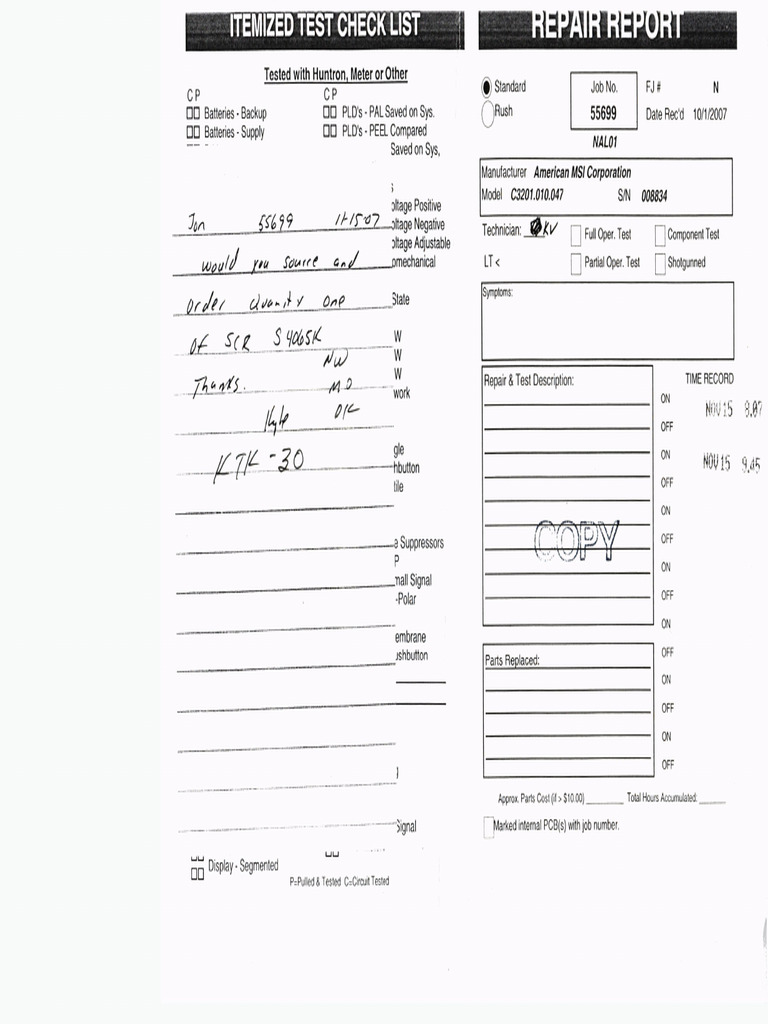 ITEMIZED TEST CHECK LIST
Tested with Huntron, Meter or Other
C P
C P
Batteries - Backup
PLD's - PAL Saved on Sys.
Batteries - Supply
PLD's - PEEL Compared
Saved on Sys,
s
oltage Positive
Jon 55699 11-15-07
oltage Negative
oltage Adjustable
would you source and
omechanical
order Quanity one
State
of SCR S4065K
W
NW
W
W
Thanks. MO
work
Kyle OK
KTK-30
gle
hbutton
tile
e Suppressors
P
mall Signal
-Polar
embrane
ushbutton
Signal
Display - Segmented
P=Pulled & Tested C=Circuit Tested
REPAIR REPORT
Standard
Rush
Job No.
55699
FJ # N
Date Rec'd 10/1/2007
NAL01
Manufacturer American MSI Corporation
Model C3201.010.047 S/N 008834
Technician: KV
Full Oper. Test
Component Test
LT <
Partial Oper. Test
Shotgunned
Symptoms:
Repair & Test Description:
TIME RECORD
ON
NOV 15 8.07
OFF
ON
NOV 15 9.45
OFF
ON
COPY
OFF
ON
OFF
ON
Parts Replaced:
OFF
ON
OFF
ON
OFF
Approx. Parts Cost (if > $10.00) Total Hours Accumulated:
Marked internal PCB(s) with job number.